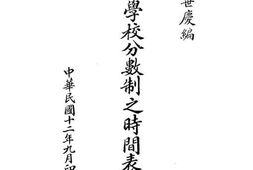 世慶編
學校分數制之時間表
中華民國十二年九月印